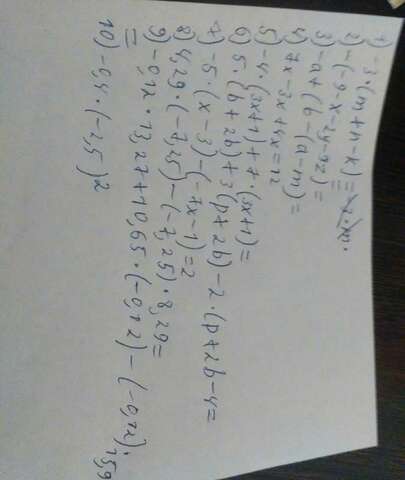 1) -3·(m+n-k)=
2) -(-9-x-2y-9z)=
3) -a+(b-(a-m)=
4) 7x-3x+4x=12
5) -4·(3x+1)+7·(3x+1)=
6) 5·(b+2b)+3(p+2b)-2·(p+2b-4=
7) -5·(x-3)-(-7x-1)=2
8) 4,29·(-7,25)-(-7,25)·8,29=
9) -0,12·13,27+10,65·(-0,12)-(-0,12)·15,9
10) -0,4·(-2,5)2